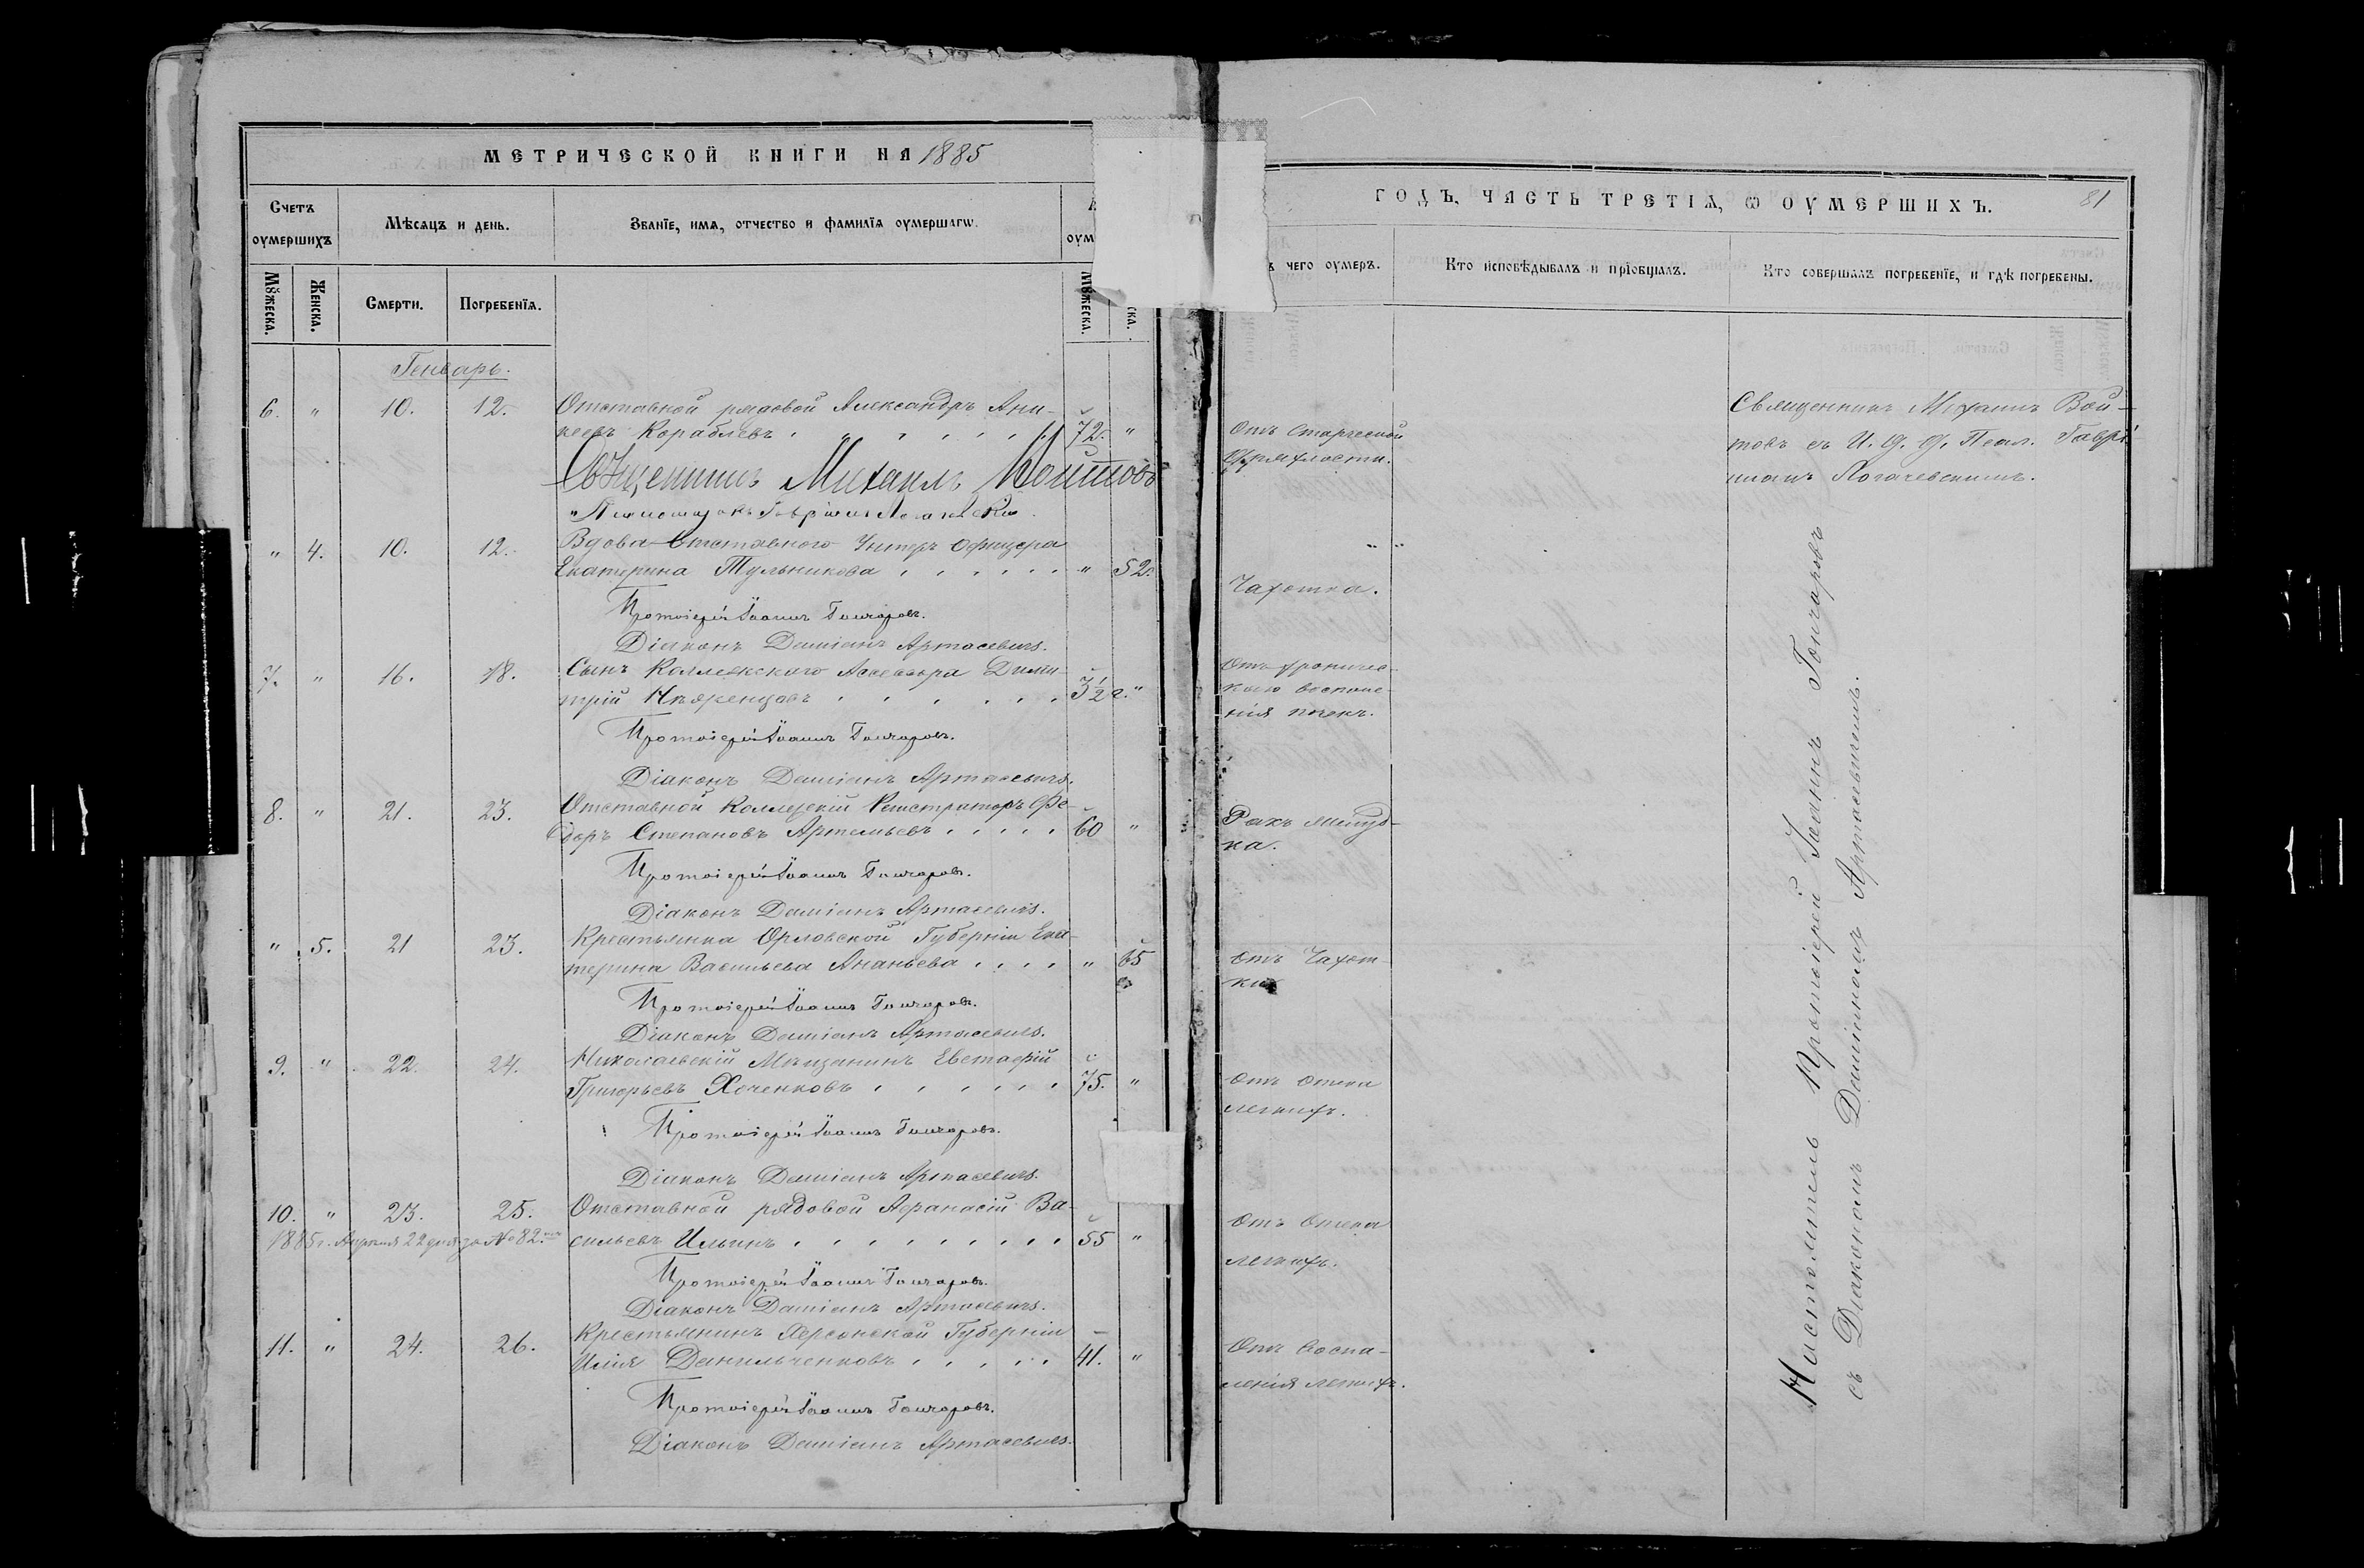 МЕТРИЧЕСКОЙ КНИГИ НА 1885
Счетъ оумершихъ
Мѣсяцъ и день.
Званїе, имя, отчество и фамилїя оумершагѡ.
Мꙋжеска.
Женска.
Смерти.
Погребенїя.
Мꙋжеска.
Генварь.
6. " 10. 12. Отставной рядовой Александръ Ани-
кеевъ Кораблевъ 72. "
Священникъ Михаилъ Войтовъ
" 4. 10. 12. Вдова Отставного Унтеръ Офицера
Екатерина Тульникова " 52.
Протоіерей Іоаннъ Гончаровъ.
Діаконъ Даміанъ Артасевичъ.
7. " 16. 18. Сынъ Коллежскаго Ассессора Дими-
трій 3 1/2 г. "
Протоіерей Іоаннъ Гончаровъ.
Діаконъ Даміанъ Артасевичъ.
8. " 21. 23. Отставной Коллежскій Регистраторъ Фе-
доръ Степановъ Артемьевъ 60 "
Протоіерей Іоаннъ Гончаровъ.
Діаконъ Даміанъ Артасевичъ.
" 5. 21 23. Крестьянка Орловской Губерніи Ека-
терина Васильева Ананьева " 65
Протоіерей Іоаннъ Гончаровъ.
Діаконъ Даміанъ Артасевичъ.
9. " 22. 24. Николаевскій Мѣщанинъ Евстафій
Григорьевъ Хоченковъ 75. "
Протоіерей Іоаннъ Гончаровъ.
Діаконъ Даміанъ Артасевичъ.
10. " 23. 25. Отставной рядовой Афанасій Ва-
1885 г. Апреля 22 дня за № 82. сильевъ Ильинъ 55 "
Протоіерей Іоаннъ Гончаровъ.
Діаконъ Даміанъ Артасевичъ.
11. " 24. 26. Крестьянинъ Херсонской Губерніи
Илія Данильченковъ 41. "
Протоіерей Іоаннъ Гончаровъ.
Діаконъ Даміанъ Артасевичъ.
ГОДЪ, ЧАСТЬ ТРЕТІЯ, Ѡ ОУМЕРШИХЪ.
81
чего оумеръ.
Кто исповѣдывалъ и прїобщалъ.
Кто совершалъ погребенїе, и гдѣ погребены.
Отъ старческой
дряхлости.
Священникъ Михаилъ Вой-
товъ съ И. Д. Псал. Гаврі-
иломъ Логачевскимъ.
Чахотка.
Отъ хроничес-
каго воспале-
нія почекъ.
Ракъ желуд-
ка.
Отъ Чахот-
ки
Отъ отека
легкихъ.
Отъ Отека
легкихъ.
Отъ воспа-
ленія легкихъ.
Настоятель Протоіерей Іоаннъ Гончаровъ
съ Діакономъ Даміаномъ Артасевичемъ.